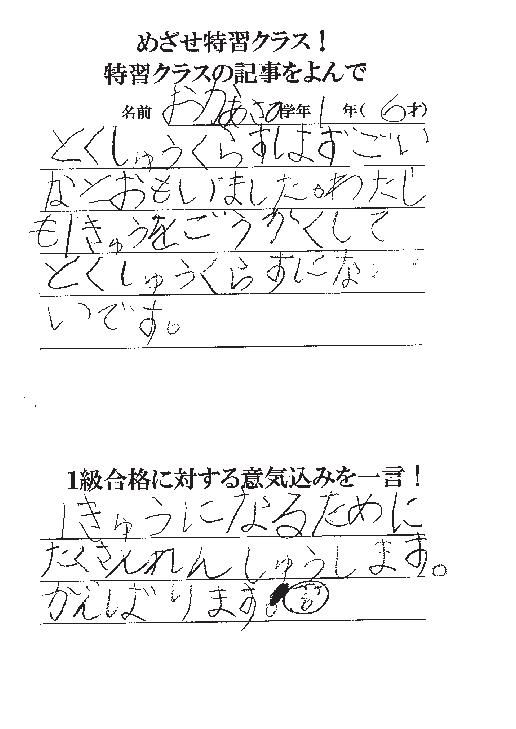 めざせ特習クラス！
特習クラスの記事をよんで
名前 おかあさの 学年 1 年( 6 才)
とくしゅうくらすはすごい
なとおもいました。わたし
も1きゅうをごうかくして
とくしゅうくらすにな
いです。
1級合格に対する意気込みを一言！
1きゅうになるために
たくさんれんしゅうします。
がんばります。